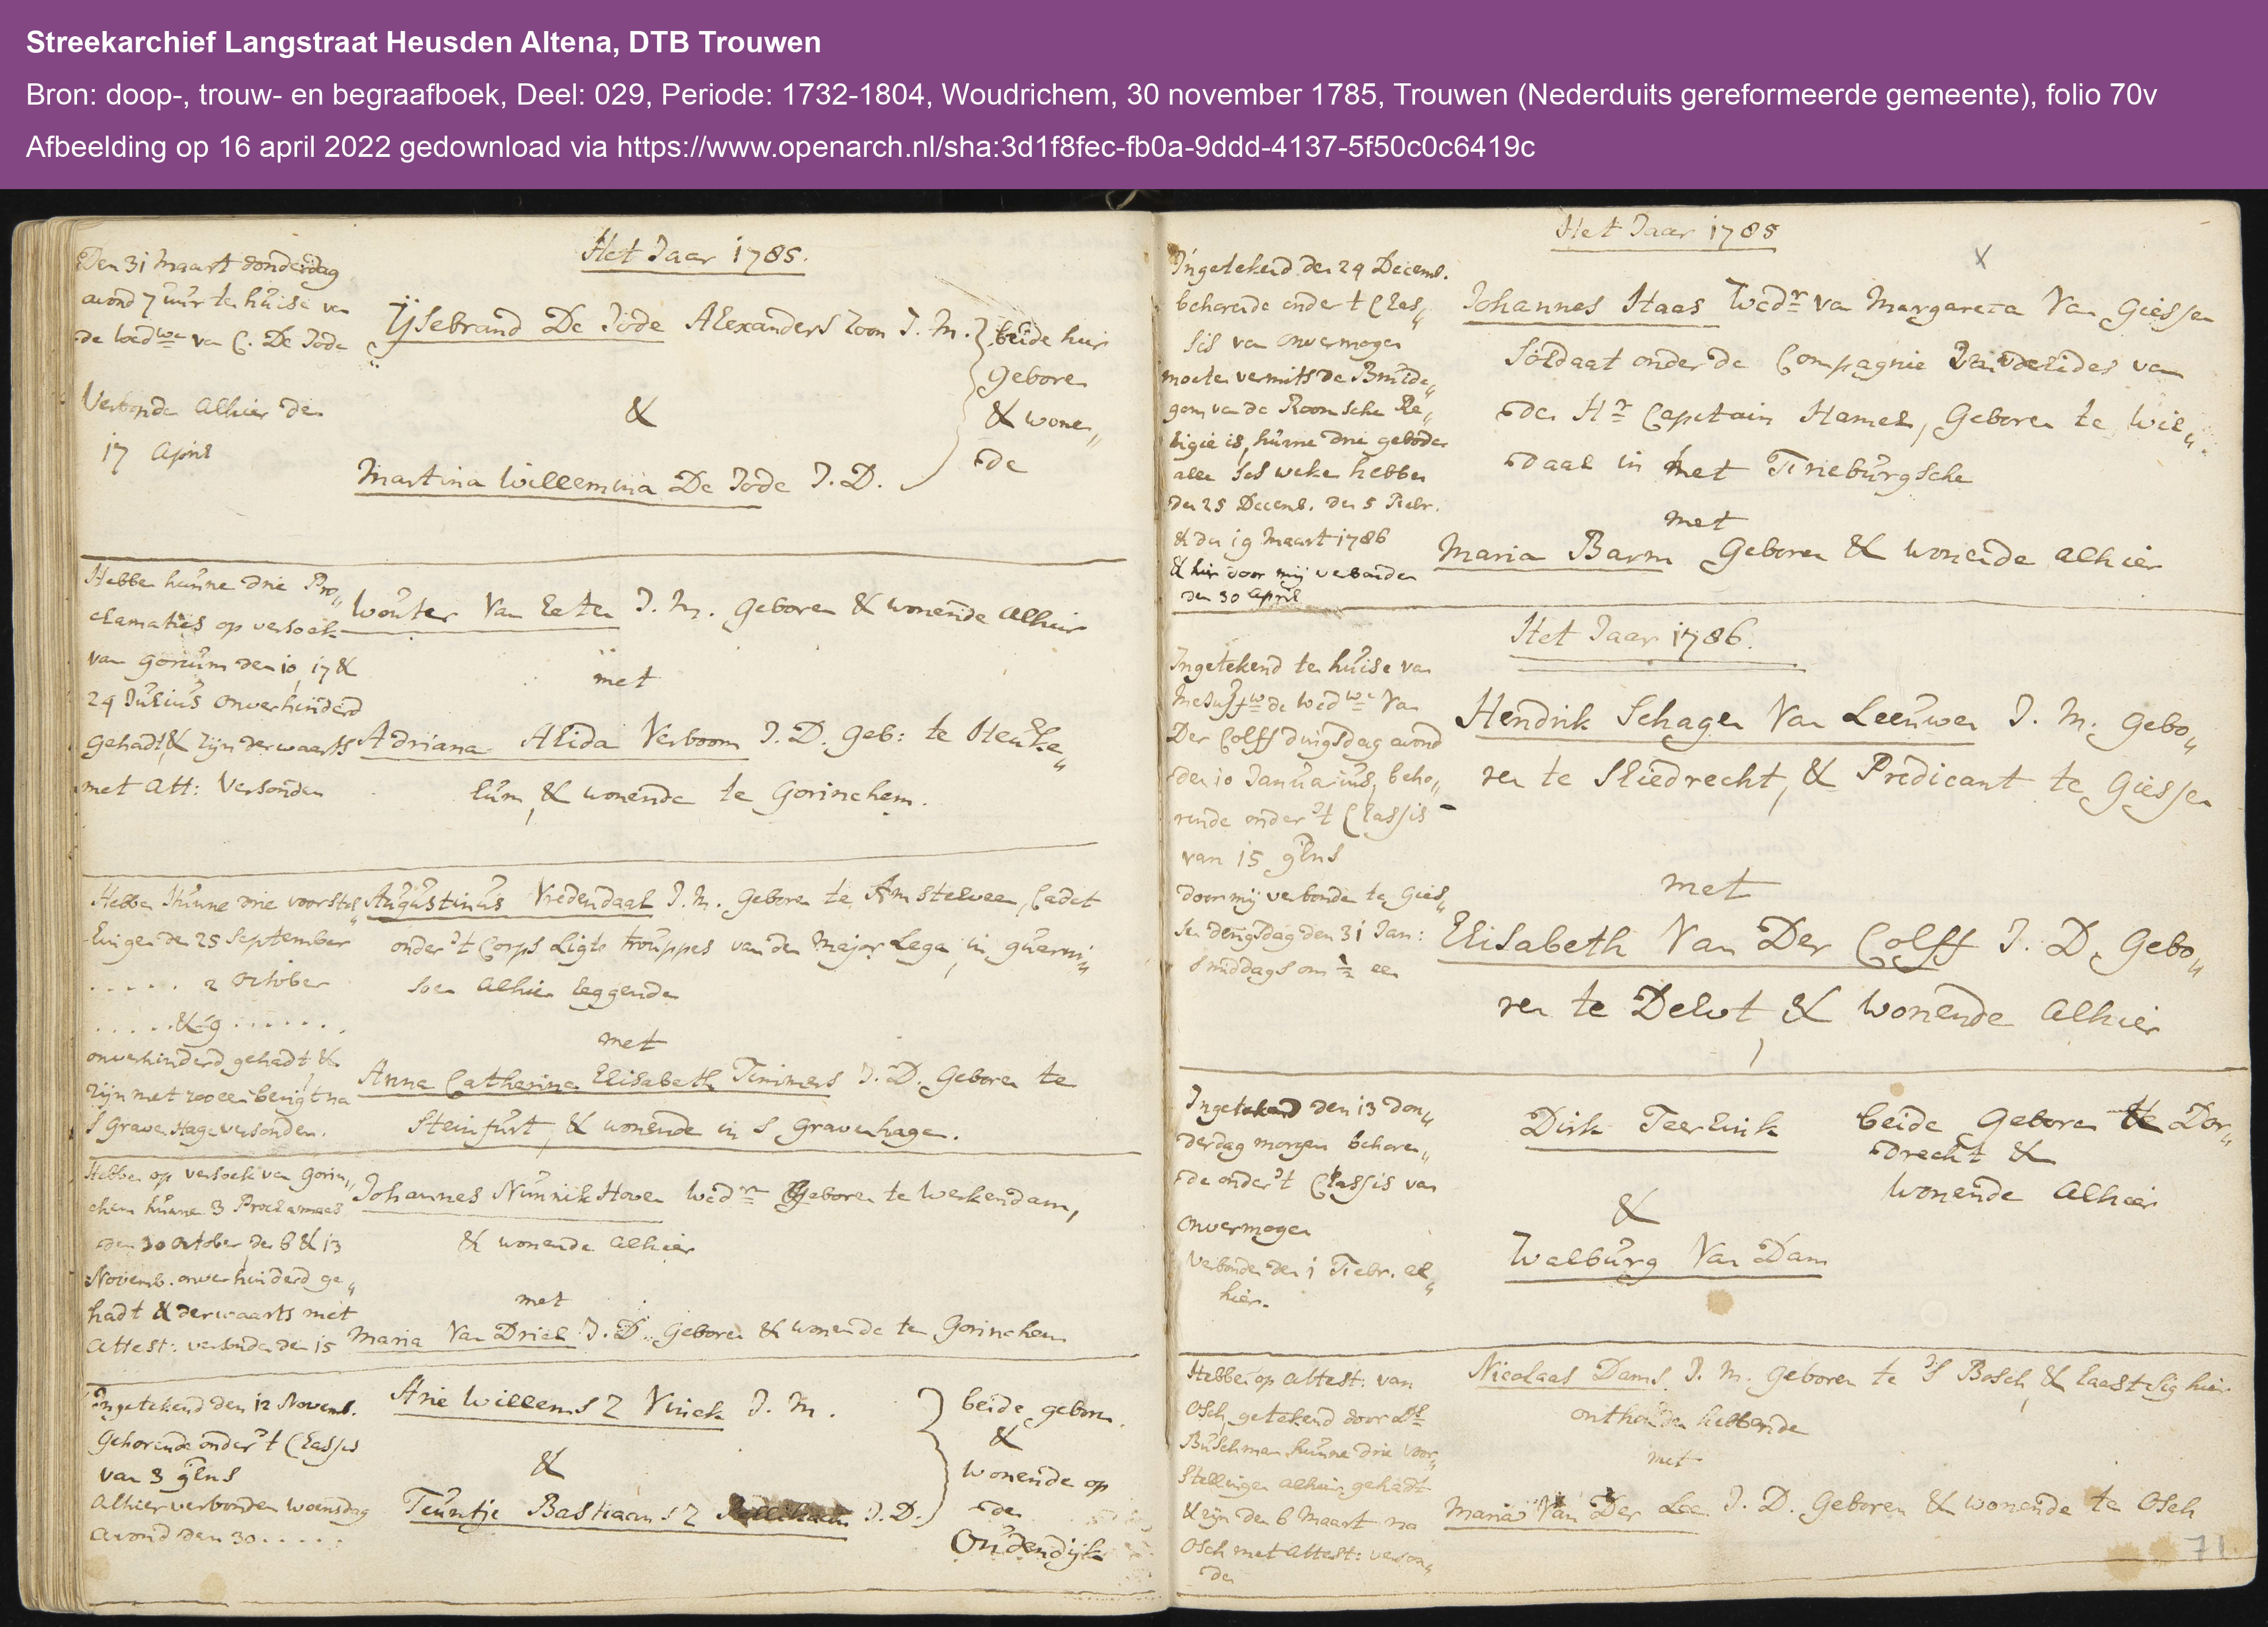 Streekarchief Langstraat Heusden Altena, DTB Trouwen
Bron: doop-, trouw- en begraafboek, Deel: 029, Periode: 1732-1804, Woudrichem, 30 november 1785, Trouwen (Nederduits gereformeerde gemeente), folio 70v
Afbeelding op 16 april 2022 gedownload via https://www.openarch.nl/sha:3d1f8fec-fb0a-9ddd-4137-5f50c0c6419c
Het Jaar 1785.
Den 31 Maart donderdag
avond 7 uur ten huise van
de Wedwe van C. De Jode
Verbonden alhier den
17 April
IJsebrand De Jode Alexanders Zoon J. M.
&
Martina Willemina De Jode J. D.
beide hier
Geboren
& wonen„
de
Hebben hunne drie Pro„
clamaties op versoek
van Gorcum den 10, 17 &
24 Julius onverhinderd
gehadt, & zijn derwaarts
met Att: Versonden
Wouter Van Eeten J. M. Geboren & wonende alhier
met
Adriana Alida Verboom J. D. Geb: te Heuke„
lum, & wonende te Gorinchem.
Hebben Hunne drie voorstel„
lingen den 25 September
. . . . . 2 October
. . . . . & 9 . . . . . .
onverhinderd gehadt &
zijn met zooeen berigt na
S Graven Hage versonden.
Augustinus Vredendaal J. M. Geboren te Amstelveen, Cadet
onder 't Corps Ligte trouppes van den Major Lega, in guarni„
soen alhier leggende
met
Anna Catharina Elisabeth Timmers J. D. Geboren te
Steinfurt, & wonende in S Gravenhagen.
Hebben op versoek van Gorin„
chem hunne 3 Proclamaes
den 30 October, den 6 & 13
Novemb. onverhinderd ge„
hadt & derwaarts met
Attest: versonden den 15
Johannes Nunnikhoven Wedr Geboren te Werkendam,
& wonende alhier
met
Maria Van Driel J. D. Geboren & wonende te Gorinchem
Ingetekend den 12 Novemb.
Gehorende onder 't Classis
van 3 glns
Alhier verbonden woensdag
avond den 30 . . . . .
Arie Willems Z Vinck J. M.
&
Teuntje Bastiaans Z J. D.
beide geboren
&
wonende op
den
Oudendijk
Het Jaar 1785
X
Ingetekend den 24 Decemb.
behorende onder 't Clas„
sis van onvermogen
moeten vermits de Bruide„
gom van de Roomsche Re„
ligie is, hunne drie geboden
alle ses weke hebben
den 25 Decemb. den 5 Febr.
& den 19 Maart 1786
& hier voor mij verbonden
den 30 April
Johannes Staas Wedr van Margareta Van Giessen
Soldaat onder de Compagnie van
den Hr Capitain Hamel, Geboren te Wil„
daal in het Trieburgsche
met
Maria Barm Geboren & wonende alhier
Het Jaar 1786.
Ingetekend ten huise van
Mejuffw de Wedwe Van
Der Colff dingsdag avond
den 10 Januarius, beho„
rende onder 't Classis
van 15 glns
door mij verbonden te Gies„
sen dingsdag den 31 Jan:
s middags om ½ een
Hendrik Schagen Van Leeuwen J. M. Gebo„
ren te Sliedrecht, & Predicant te Giessen
met
Elisabeth Van Der Colff J. D. Gebo„
ren te Delvt & wonende Alhier
Ingetekend den 13 don„
derdag morgen behoren„
de onder 't Classis van
onvermogen
Verbonden den 1 Febr. al„
hier.
Dirk Teerlink
&
Walburg Van Dam
beide Geboren te Dor„
drecht &
Wonende Alhier
Hebben op attest: van
Osch, getekend door Ds
Buschman hunne drie voor„
stellingen alhier gehadt
& zijn den 6 Maart na
Osch met Attest: verson„
den
Nicolaas Dams J. M. geboren te 'S Bosch, & laast sig hier
onthouden hebbende
met
Maria Van Der Lee J. D. Geboren & wonende te Osch
71